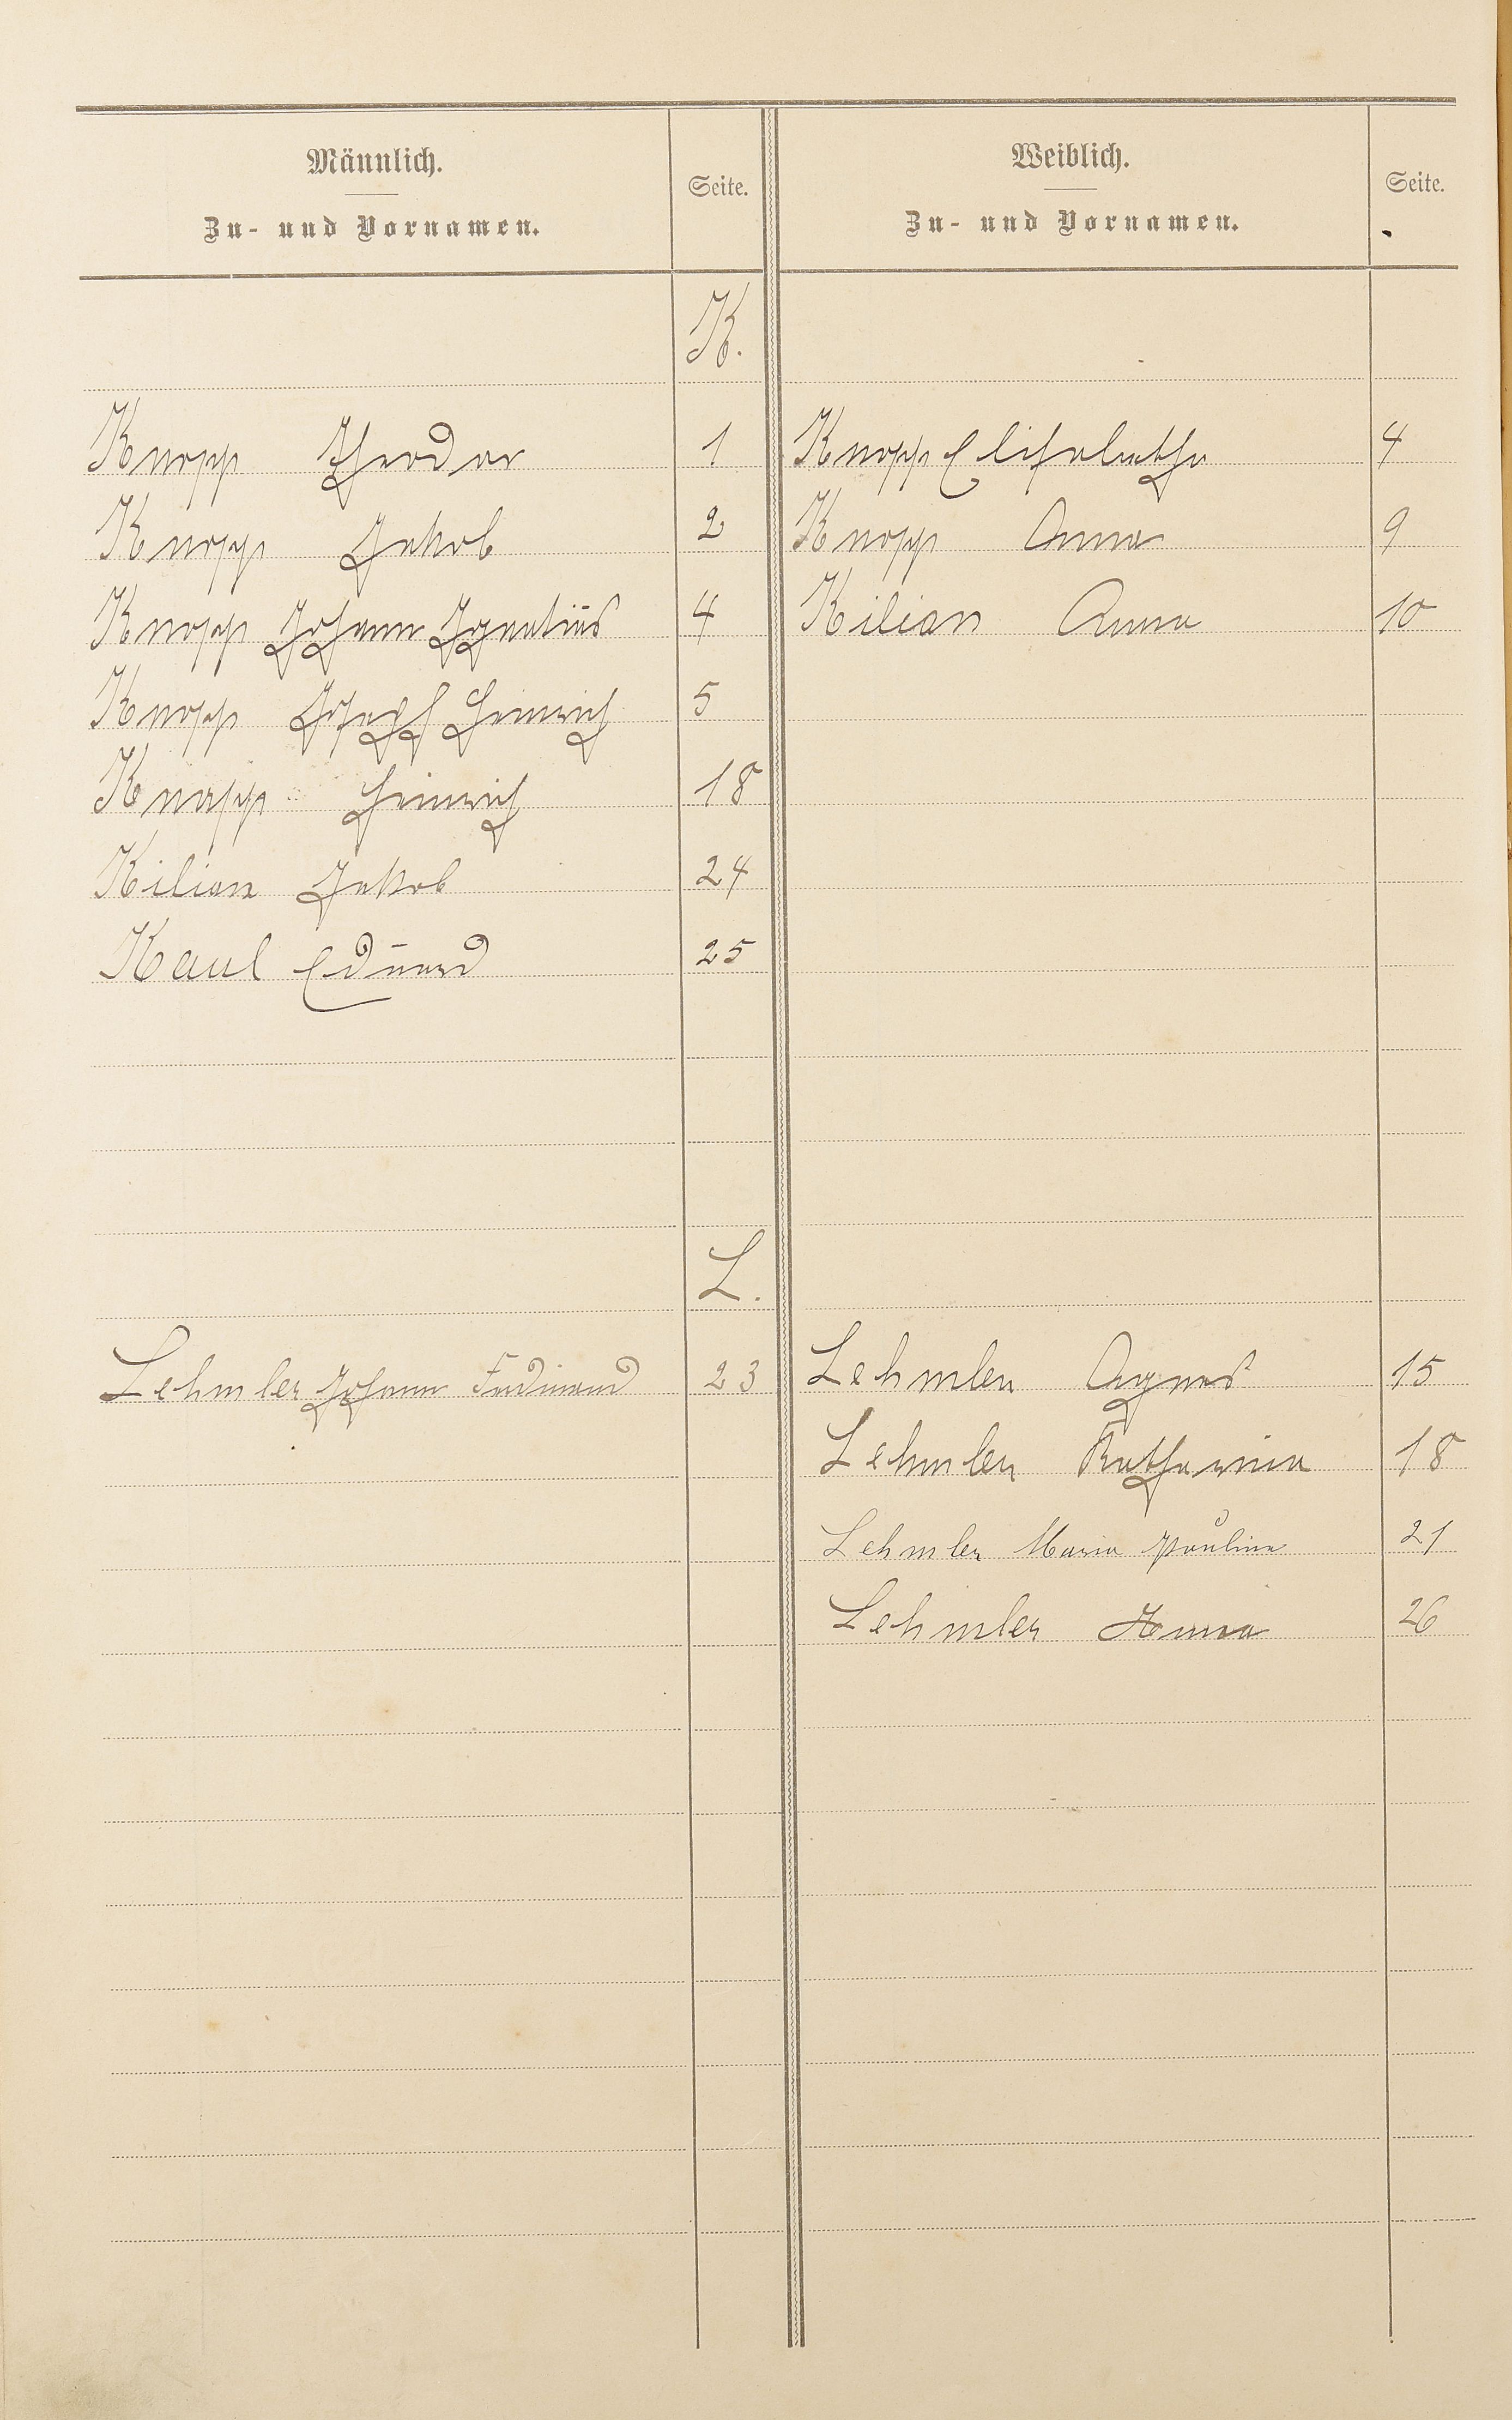 Männlich.
Zu- und Vornamen.
Seite.
Weiblich.
Zu- und Vornamen.
Seite.
K.
Knopp Theodor 1 Knopp Elisabetha 4
Knopp Jakob 2 Knopp Anna 9
Knopp Johann Ignatius 4 Kilian Anna 10
Knopp Joseph Heinrich 5
Knopp Heinrich 18
Kilian Jakob 24
Kaul Eduard 25
L.
Lehmler Johann Ferdinand 23 Lehmler Agnes 15
Lehmler Katharina 18
Lehmler Maria Paulina 21
Lehmler Anna 26